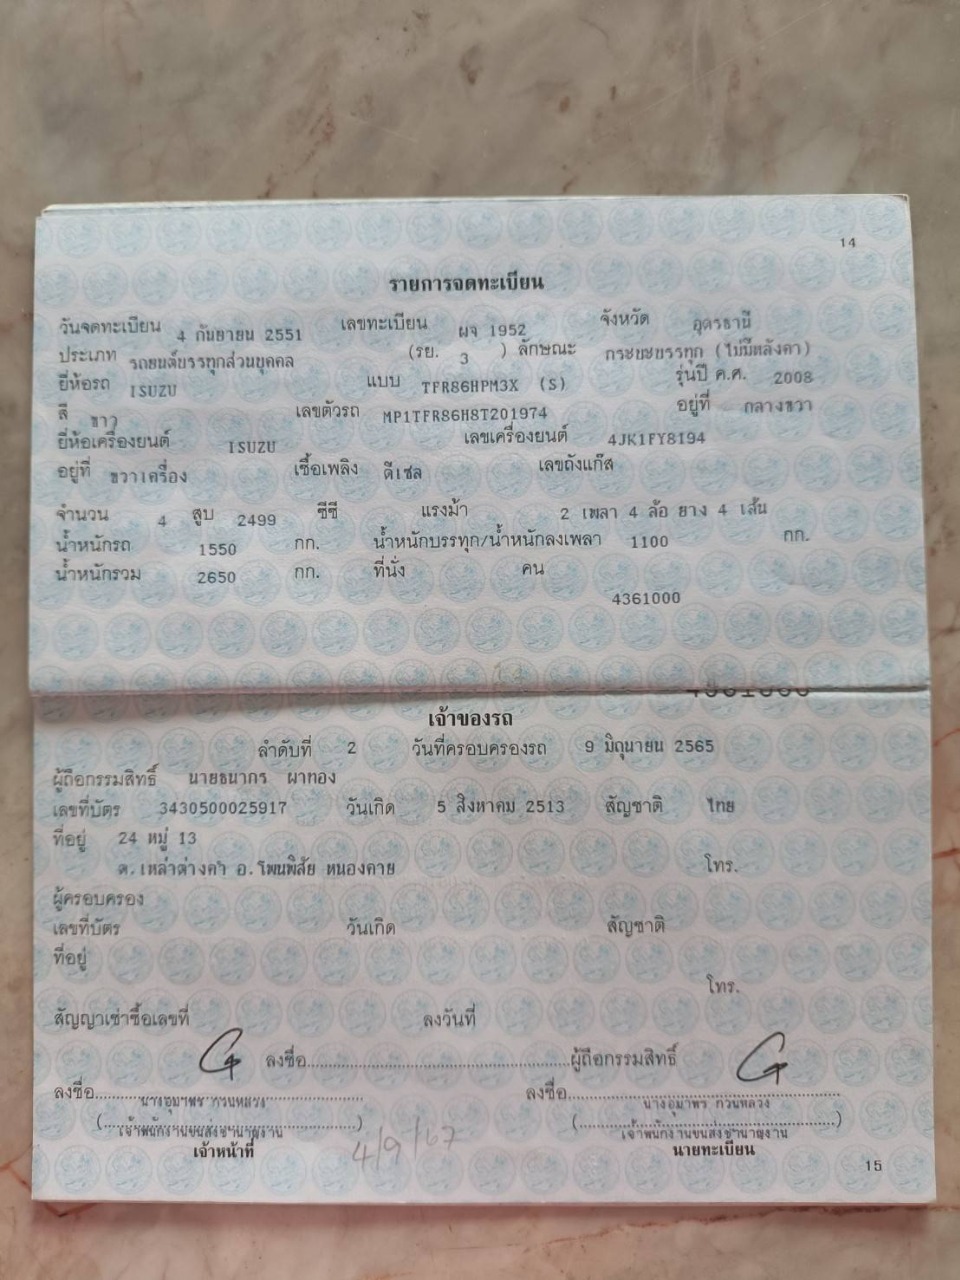 14
รายการจดทะเบียน
วันจดทะเบียน 4 กันยายน 2551 เลขทะเบียน ผจ 1952 จังหวัด อุดรธานี
ประเภท รถยนต์บรรทุกส่วนบุคคล (รย. 3 ) ลักษณะ กระบะบรรทุก (ไม่มีหลังคา)
ยี่ห้อรถ ISUZU แบบ TFR86HPM3X (S) รุ่นปี ค.ศ. 2008
สี ขาว เลขตัวรถ MP1TFR86H8T201974 อยู่ที่ กลางขวา
ยี่ห้อเครื่องยนต์ ISUZU เลขเครื่องยนต์ 4JK1FY8194
อยู่ที่ ขวาเครื่อง เชื้อเพลิง ดีเซล เลขถังแก๊ส
จำนวน 4 สูบ 2499 ซีซี แรงม้า 2 เพลา 4 ล้อ ยาง 4 เส้น
น้ำหนักรถ 1550 กก. น้ำหนักบรรทุก/น้ำหนักลงเพลา 1100 กก.
น้ำหนักรวม 2650 กก. ที่นั่ง คน
4361000
เจ้าของรถ
ลำดับที่ 2 วันที่ครอบครองรถ 9 มิถุนายน 2565
ผู้ถือกรรมสิทธิ์ นายธนากร ผาทอง
เลขที่บัตร 3430500025917 วันเกิด 5 สิงหาคม 2513 สัญชาติ ไทย
ที่อยู่ 24 หมู่ 13
ต. เหล่าต่างคำ อ. โพนพิสัย หนองคาย โทร.
ผู้ครอบครอง
เลขที่บัตร วันเกิด สัญชาติ
ที่อยู่
โทร.
สัญญาเช่าซื้อเลขที่ ลงวันที่
ลงชื่อ ผู้ถือกรรมสิทธิ์
ลงชื่อ นางอุมาพร กวนหลวง ลงชื่อ นางอุมาพร กวนหลวง
(เจ้าพนักงานขนส่งชำนาญงาน) (เจ้าพนักงานขนส่งชำนาญงาน)
เจ้าหน้าที่ 4/9/67 นายทะเบียน
15